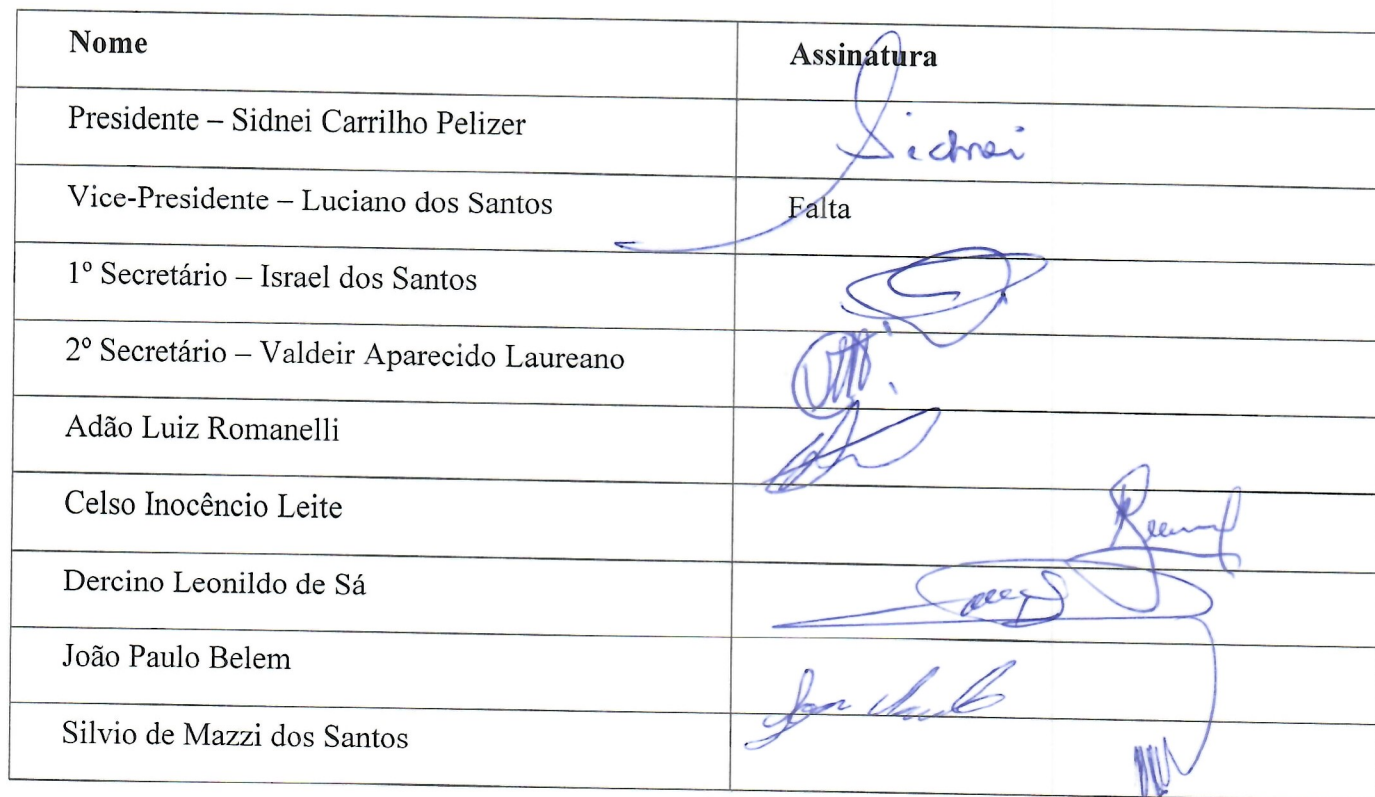 Nome Assinatura
Presidente – Sidnei Carrilho Pelizer Sidnei
Vice-Presidente – Luciano dos Santos Falta
1º Secretário – Israel dos Santos
2º Secretário – Valdeir Aparecido Laureano
Adão Luiz Romanelli
Celso Inocêncio Leite
Dercino Leonildo de Sá
João Paulo Belem
Silvio de Mazzi dos Santos